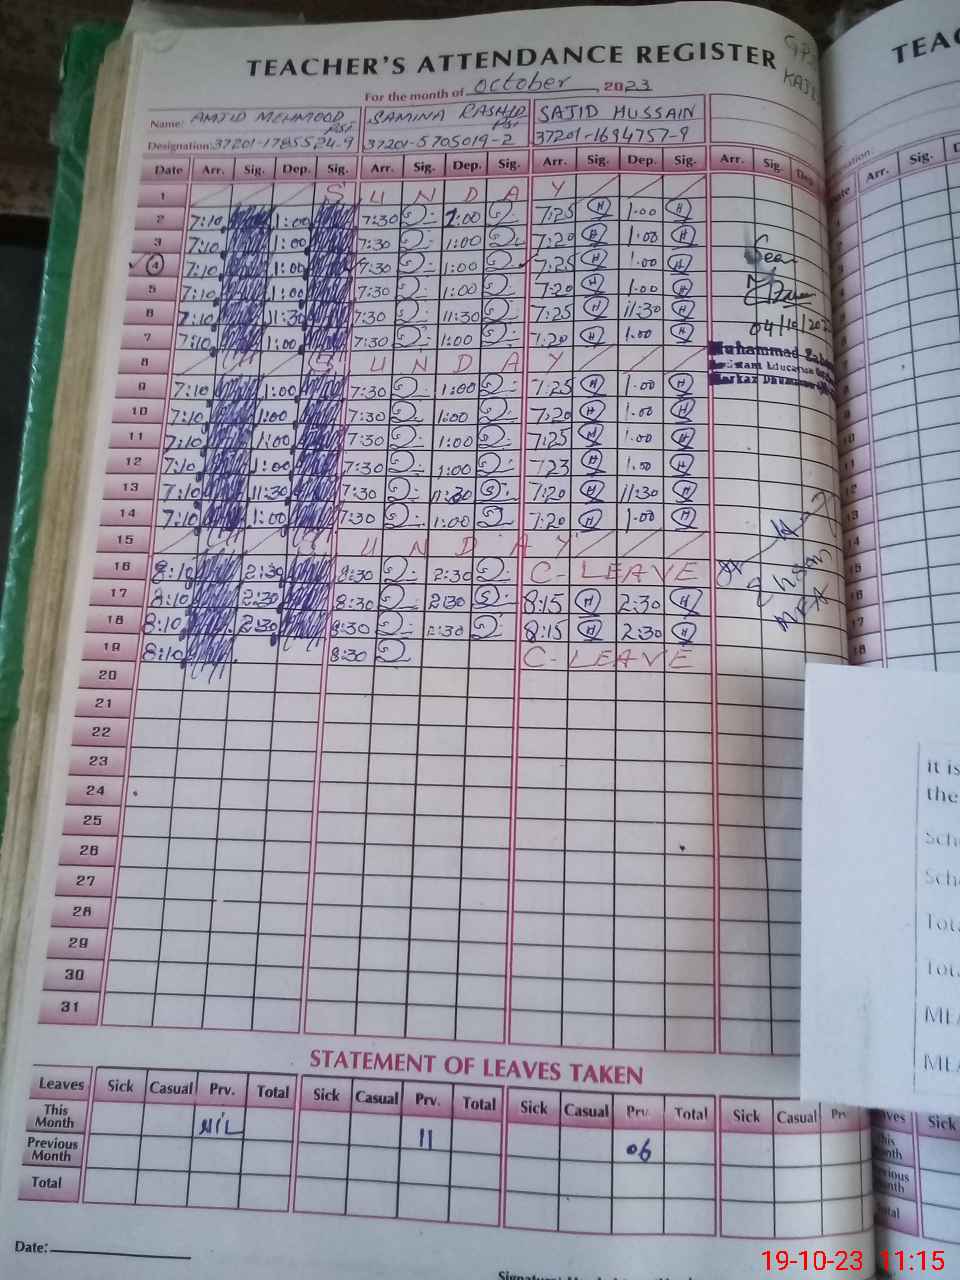 TEACHER'S ATTENDANCE REGISTER
For the month of October, 2023
Name: AMJID MEHMOOD PST SAMINA RASHID PST SAJID HUSSAIN
Designation: 37201-1785524-9 37201-5705019-2 37201-1694757-9
Date Arr. Sig. Dep. Sig. Arr. Sig. Dep. Sig. Arr. Sig. Dep. Sig. Arr. Sig. Dep.
1 S U N D A Y
2 7:10 1:00 7:30 1:00 7:25 H 1.00 H
3 7:10 1:00 7:30 1:00 7:20 H 1.00 H
4 7:10 1:00 7:30 1:00 7:25 H 1.00 H
5 7:10 1:00 7:30 1:00 7:20 H 1.00 H
6 7:10 11:30 7:30 11:30 7:25 H 11:30 H
7 7:10 1:00 7:30 1:00 7:20 H 1.00 H
8 S U N D A Y
9 7:10 1:00 7:30 1:00 7:25 H 1.00 H
10 7:10 1:00 7:30 1:00 7:20 H 1.00 H
11 7:10 1:00 7:30 1:00 7:25 H 1.00 H
12 7:10 1:00 7:30 1:00 7:23 H 1.00 H
13 7:10 11:30 7:30 11:30 7:20 H 11:30 H
14 7:10 1:00 7:30 1:00 7:20 H 1.00 H
15 S U N D A Y
16 8:10 2:30 8:30 2:30 C-LEAVE
17 8:10 2:30 8:30 2:30 8:15 H 2:30 H
18 8:10 2:30 8:30 2:30 8:15 H 2:30 H
19 8:10 8:30 C-LEAVE
20
21
22
23
24
25
26
27
28
29
30
31
Seen
04/10/202
Muhammad
Assistant Education
Markaz
MEA
STATEMENT OF LEAVES TAKEN
Leaves Sick Casual Prv. Total Sick Casual Prv. Total Sick Casual Prv. Total Sick Casual Prv
This Month NIL 11 06
Previous Month
Total
Date:
TEAC
Arr. Sig.
it is
the
Sch
Sch
Tot
Tot
ME
ME
Sick
19-10-23 11:15